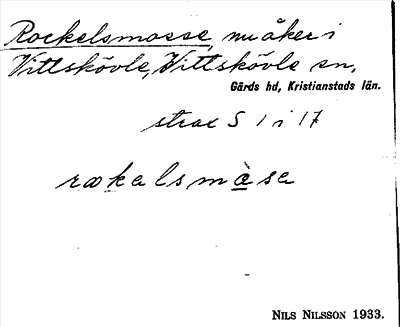 Rockelsmosse, nu åker i
Vittskövle, Vittskövle sn,
Gärds hd, Kristianstads län.
strax S 1 i 17
rækelsmòsa
NILS NILSSON 1933.